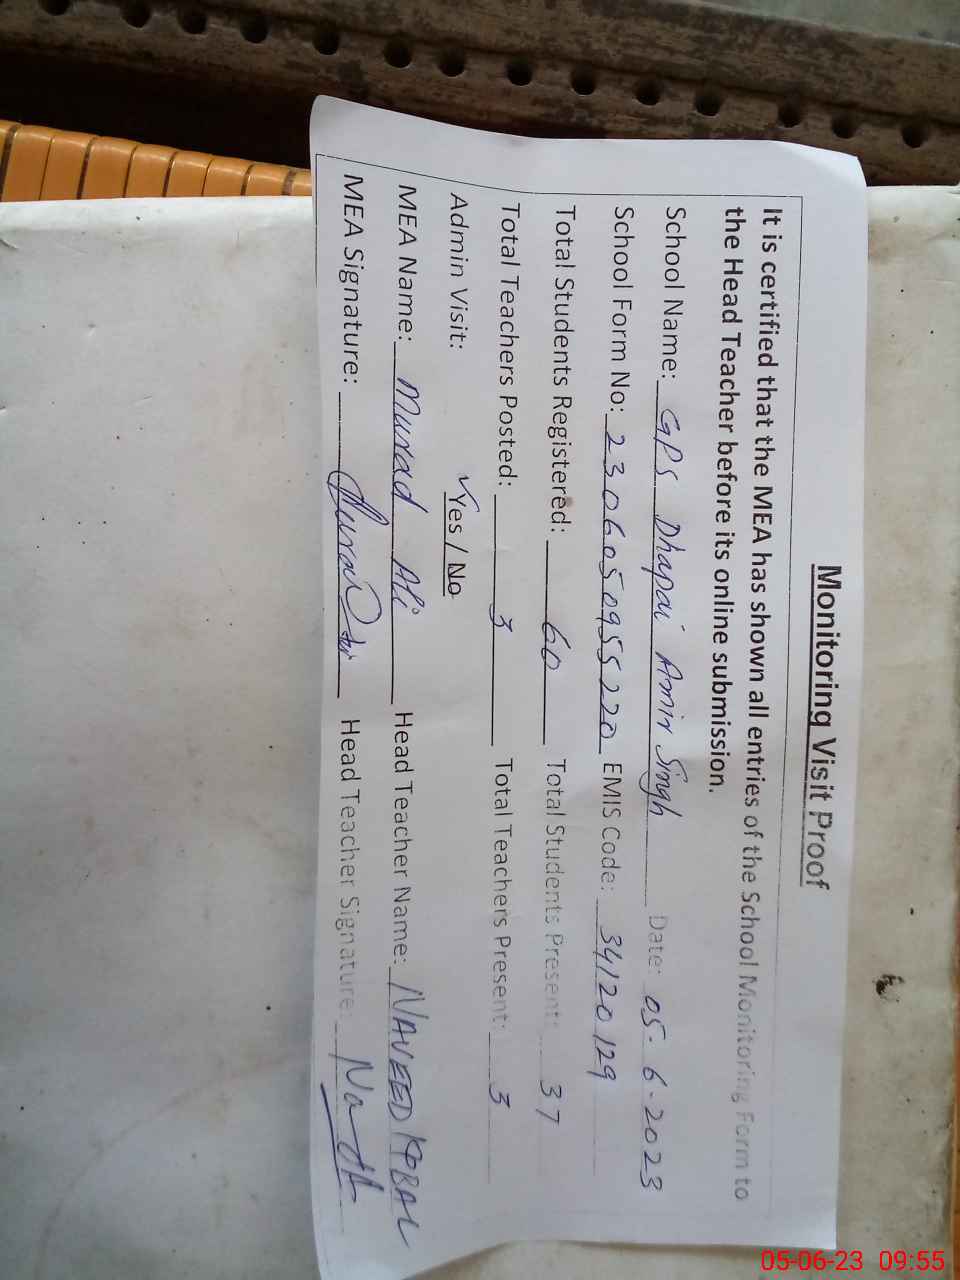 Monitoring Visit Proof
It is certified that the MEA has shown all entries of the School Monitoring Form to
the Head Teacher before its online submission.
School Name: GPS Dhapai Amir Singh Date: 05.6.2023
School Form No: 230605095S220 EMIS Code: 34120129
Total Students Registered: 60 Total Students Present: 37
Total Teachers Posted: 3 Total Teachers Present: 3
Admin Visit: ✓Yes / No
MEA Name: Murad Ali Head Teacher Name: NAVEED IQBAL
MEA Signature: Head Teacher Signature:
05-06-23 09:55